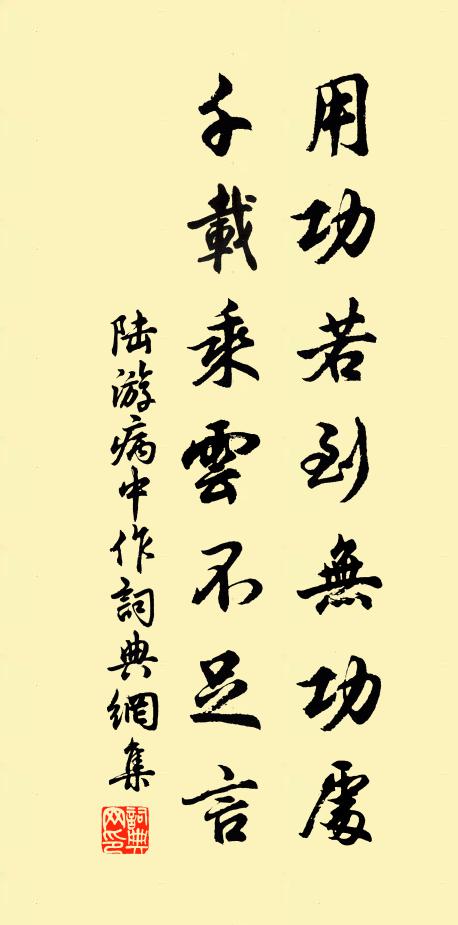 用功若到無功處
千載乘雲不足言
陸游病中作詞典網集
詞典網印